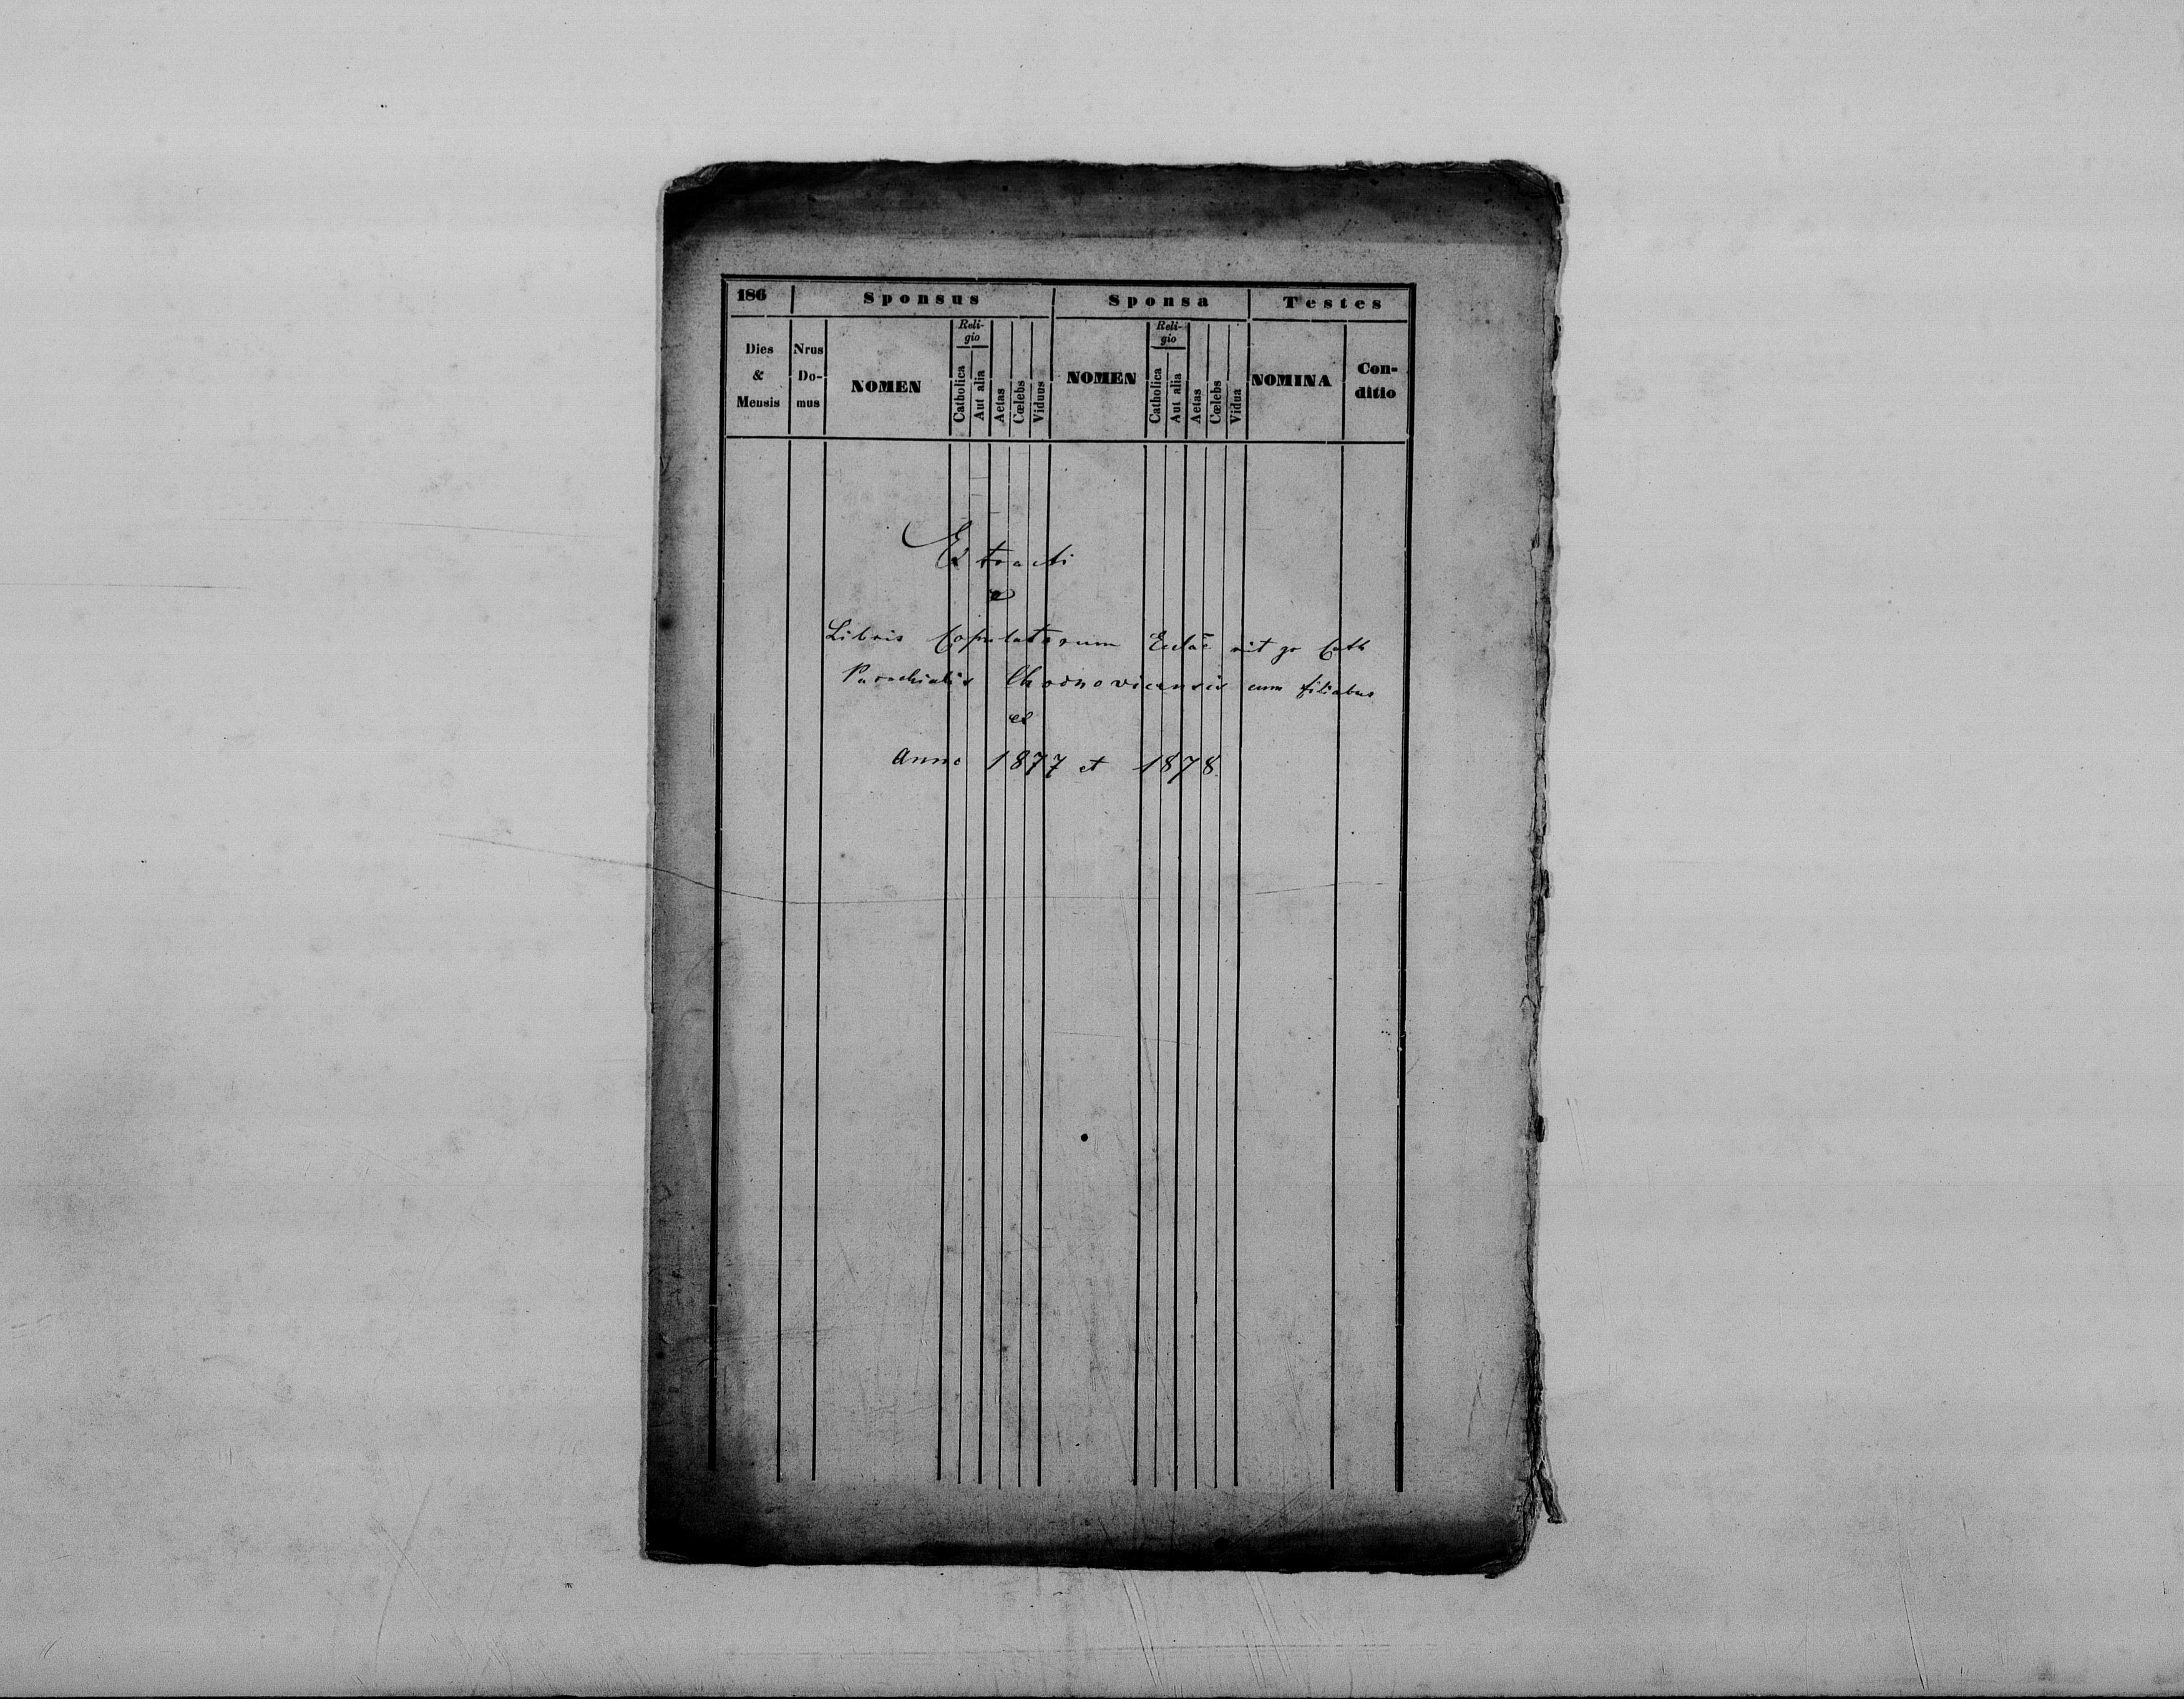 186 Sponsus Sponsa Testes
Dies & Mensis Nrus Do- mus NOMEN Reli- gio Catholica Aut alia Aetas Cœlebs Viduus NOMEN Reli- gio Catholica Aut alia Aetas Cœlebs Vidua NOMINA Con- ditio
Extracti
e
Libris Copulatorum Eccłae rit gr Cath
Parochialis Chodnovicensis cum filiabus
ex
Anno 1877 et 1878.